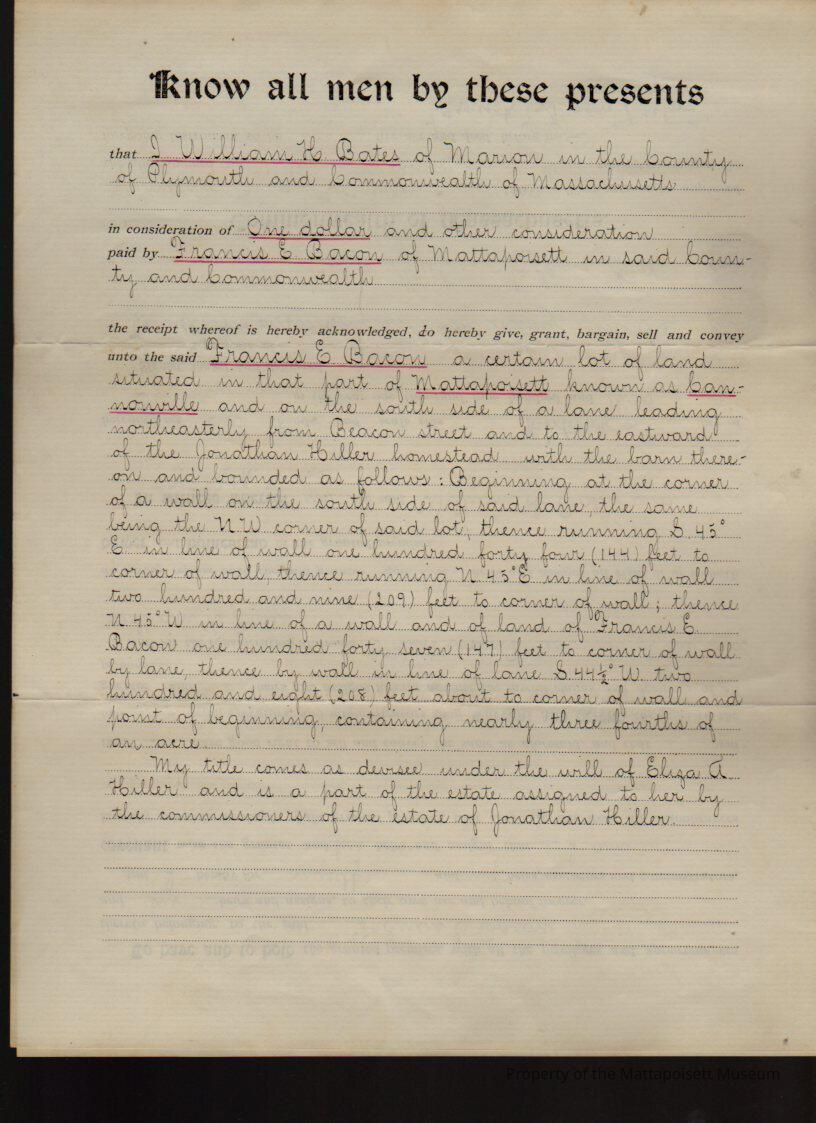 Know all men by these presents
that I William H. Bates of Marion in the County
of Plymouth and Commonwealth of Massachusetts
in consideration of One dollar and other consideration
paid by Francis E Bacon of Mattapoisett in said Coun-
ty and Commonwealth
the receipt whereof is hereby acknowledged, do hereby give, grant, bargain, sell and convey
unto the said Francis E Bacon a certain lot of land
situated in that part of Mattapoisett known as Can-
nonville and on the south side of a lane leading
northeasterly from Beacon street and to the eastward
of the Jonathan Hiller homestead with the barn there-
on and bounded as follows: Beginning at the corner
of a wall on the south side of said lane, the same
being the N W corner of said lot, thence running S. 45°
E in line of wall one hundred forty four (144) feet to
corner of wall, thence running N 45° E in line of wall
two hundred and nine (209) feet to corner of wall; thence
N 45° W in line of a wall and of land of Francis E
Bacon one hundred forty seven (147) feet to corner of wall
by lane, thence by wall in line of lane S. 44½° W. two
hundred and eight (208) feet about to corner of wall and
point of beginning, containing nearly three fourths of
an acre.
My title comes as devisee under the will of Eliza A
Hiller and is a part of the estate assigned to her by
the commissioners of the estate of Jonathan Hiller.
Property of the Mattapoisett Museum